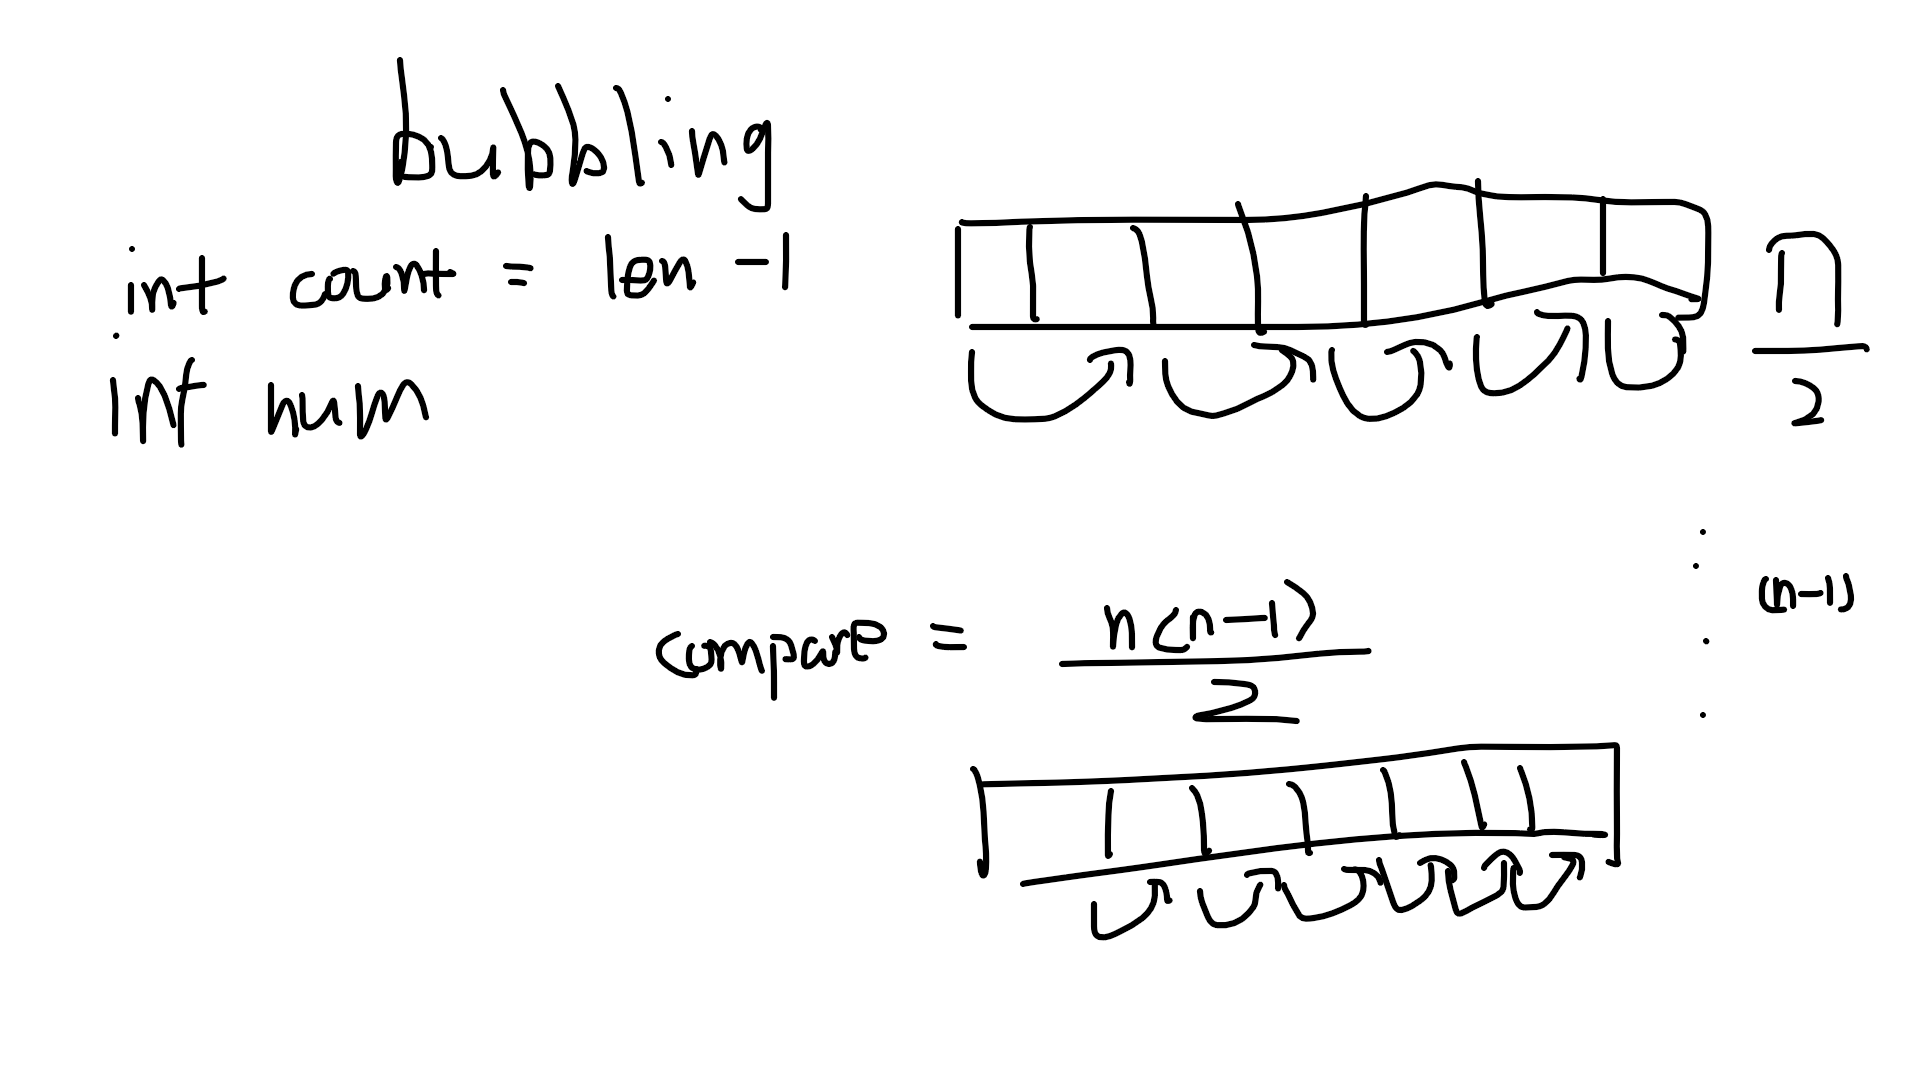 bubbling
int count = len -1
int num
n
2
(n-1)
compare = n(n-1)
2